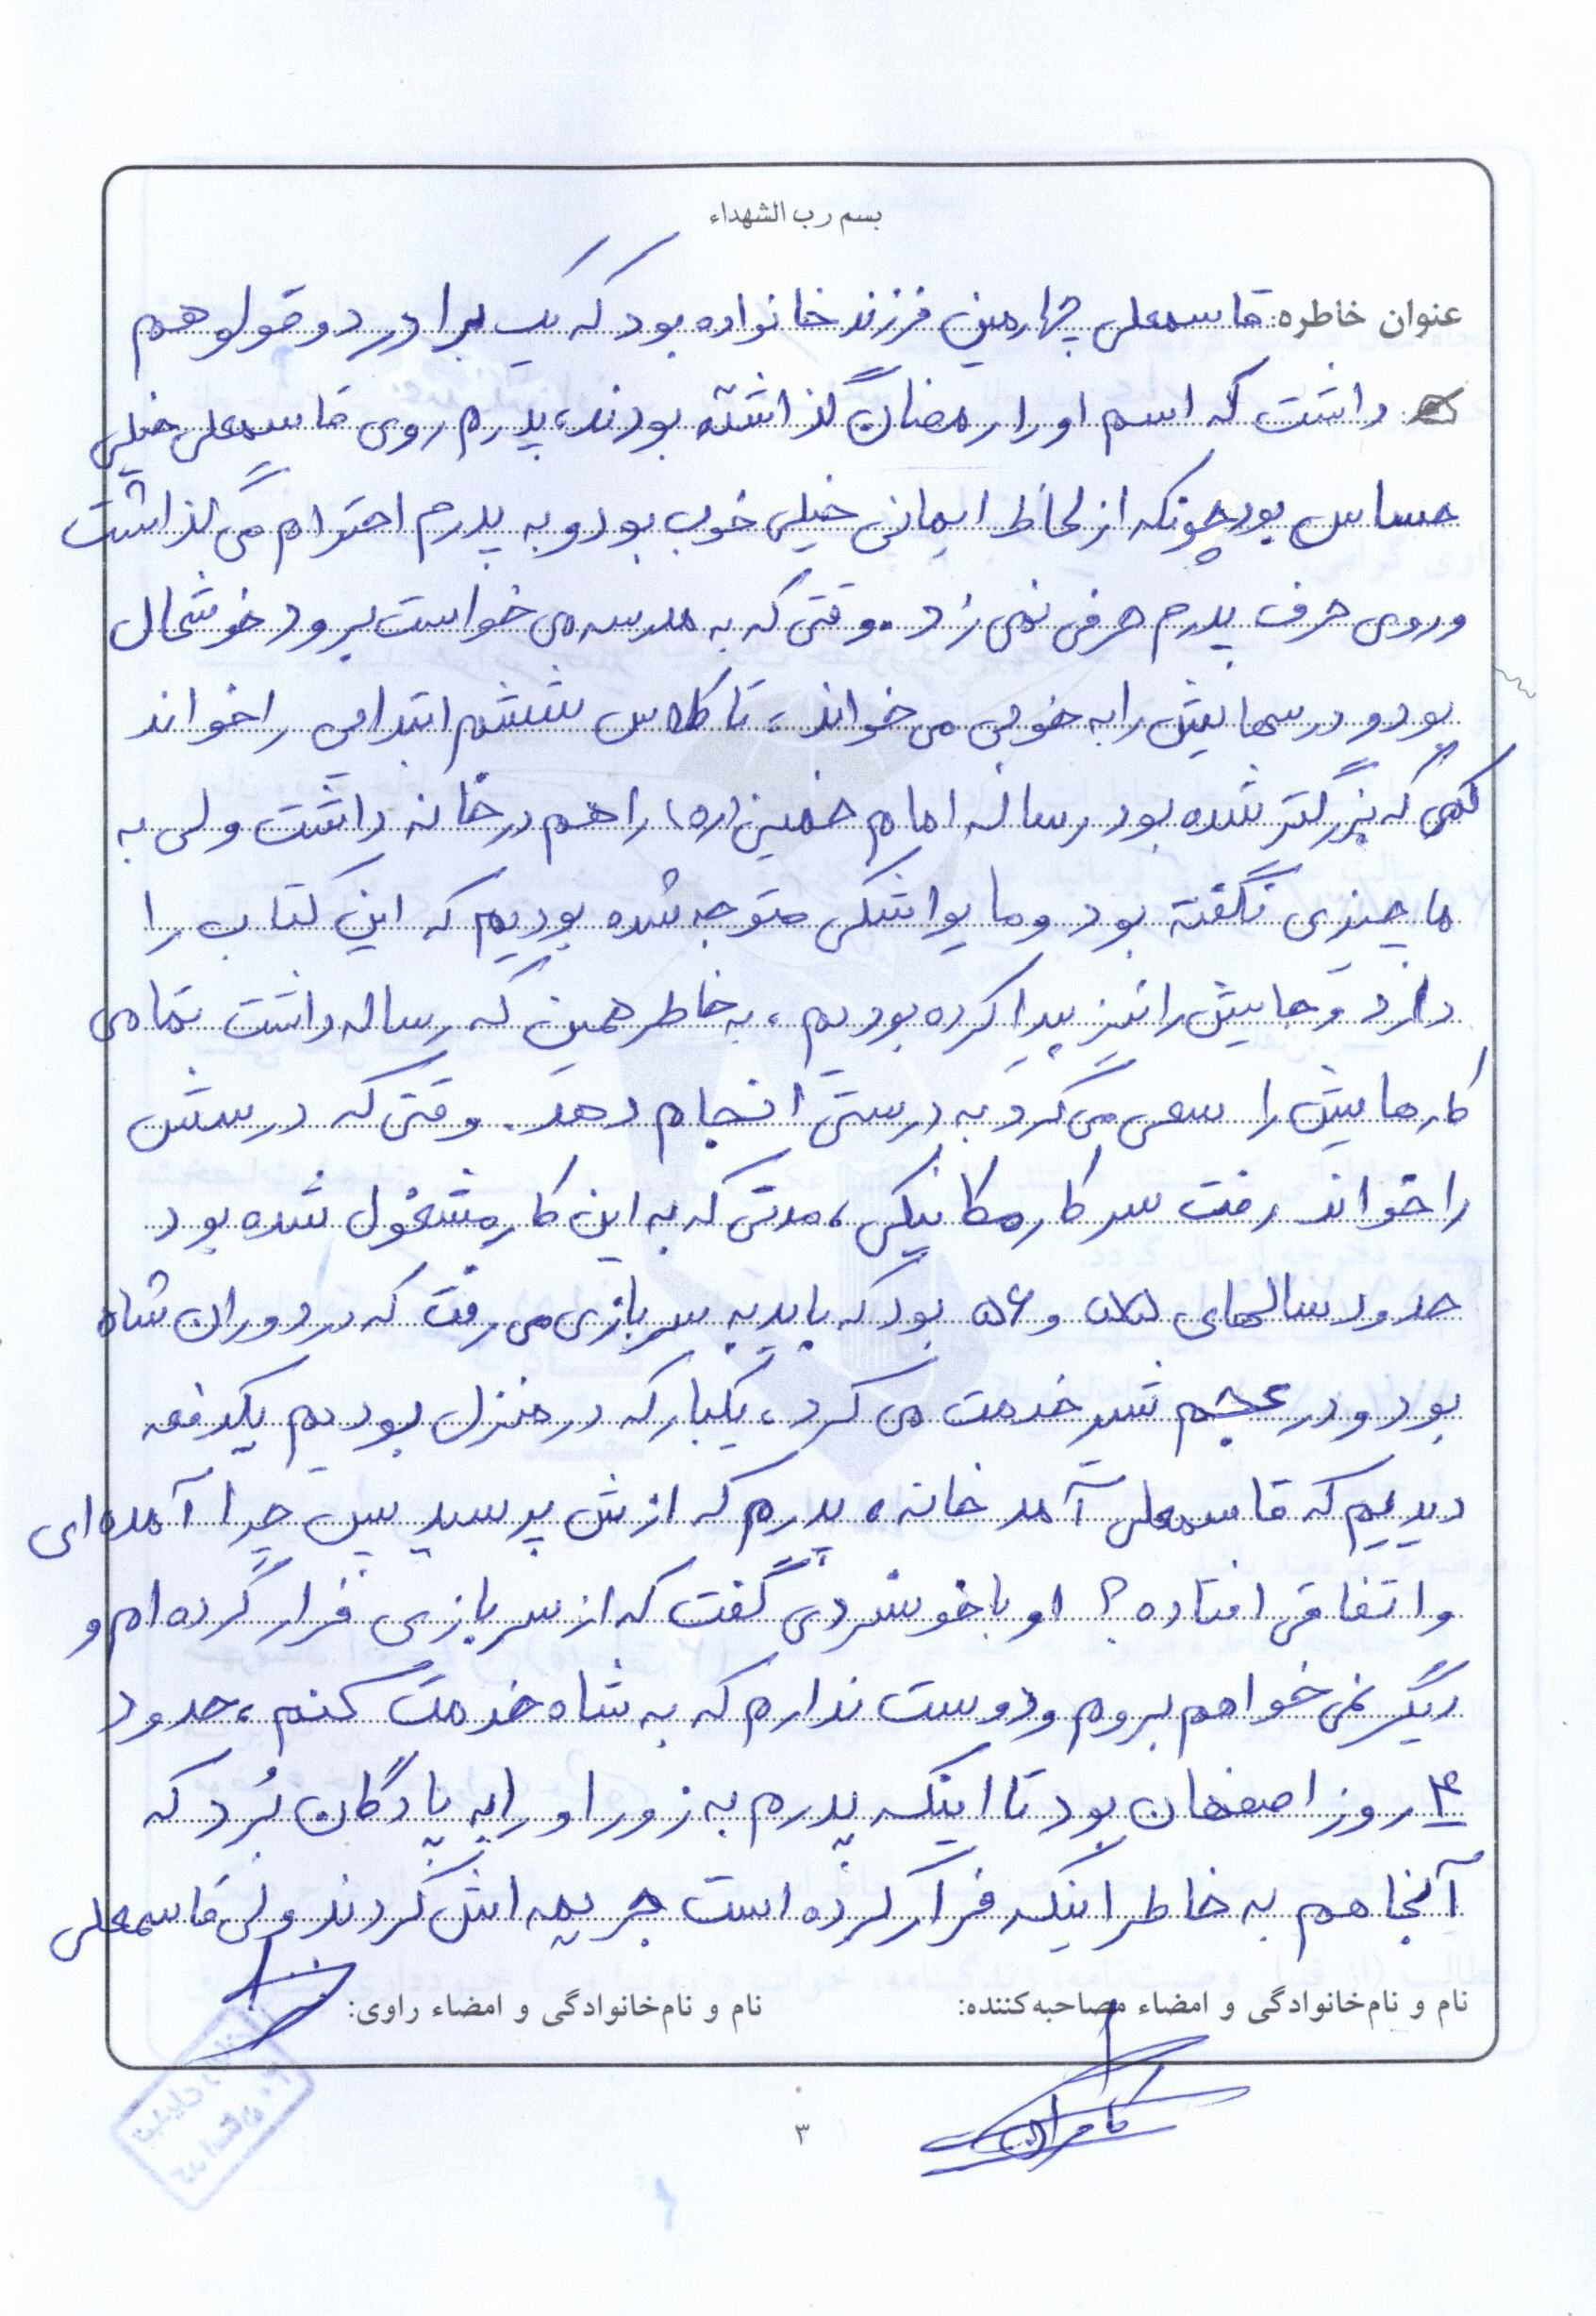 بسم رب الشهداء
عنوان خاطره: قاسمعلی چهارمین فرزند خانواده بود که یک برادر دوقولو هم
داشت که اسم او را رمضان گذاشته بودند، پدرم روی قاسمعلی خیلی
حساس بود چونکه از لحاظ ایمانی خیلی خوب بود و به پدرم احترام می گذاشت
و روی حرف پدرم حرفی نمی زد. وقتی که به مدرسه می خواست برود خوشحال
بود و درسهایش را به خوبی می خواند، تا کلاس ششم ابتدایی را خواند
کمی که بزرگتر شده بود رساله امام خمینی (ره) را هم در خانه داشت ولی به
ما چیزی نگفته بود و ما یواشکی متوجه شده بودیم که این کتاب را
دارد و جایش را نیز پیدا کرده بودیم، به خاطر همین که رساله داشت تمامی
کارهایش را سعی می کرد به درستی انجام دهد. وقتی که درسش
را خواند رفت سر کار مکانیکی، مدتی که به این کار مشغول شده بود
حدود سالهای ۵۵ و ۵۶ بود که باید به سربازی می رفت که در دوران شاه
بود و در عجم شیر خدمت می کرد، یکبار که در منزل بودیم یکدفعه
دیدیم که قاسمعلی آمد خانه، پدرم که ازش پرسید پس چرا آمده ای
و اتفاقی افتاده؟ او با خونسردی گفت که از سربازی فرار کرده ام و
دیگر نمی خواهم بروم و دوست ندارم که به شاه خدمت کنم، حدود
روز اصفهان بود تا اینکه پدرم به زور او را به پادگان بُرد که
آنجا هم به خاطر اینکه فرار کرده است جریمه اش کردند ولی قاسمعلی
نام و نام‌خانوادگی و امضاء مصاحبه‌کننده: نام و نام‌خانوادگی و امضاء راوی:
کامران
۳